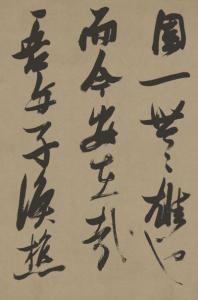 固一世之雄也
而今安在哉
吾與子漁樵